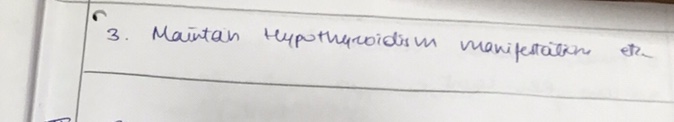 3. Maintan Hypothyroidism manifestation etc